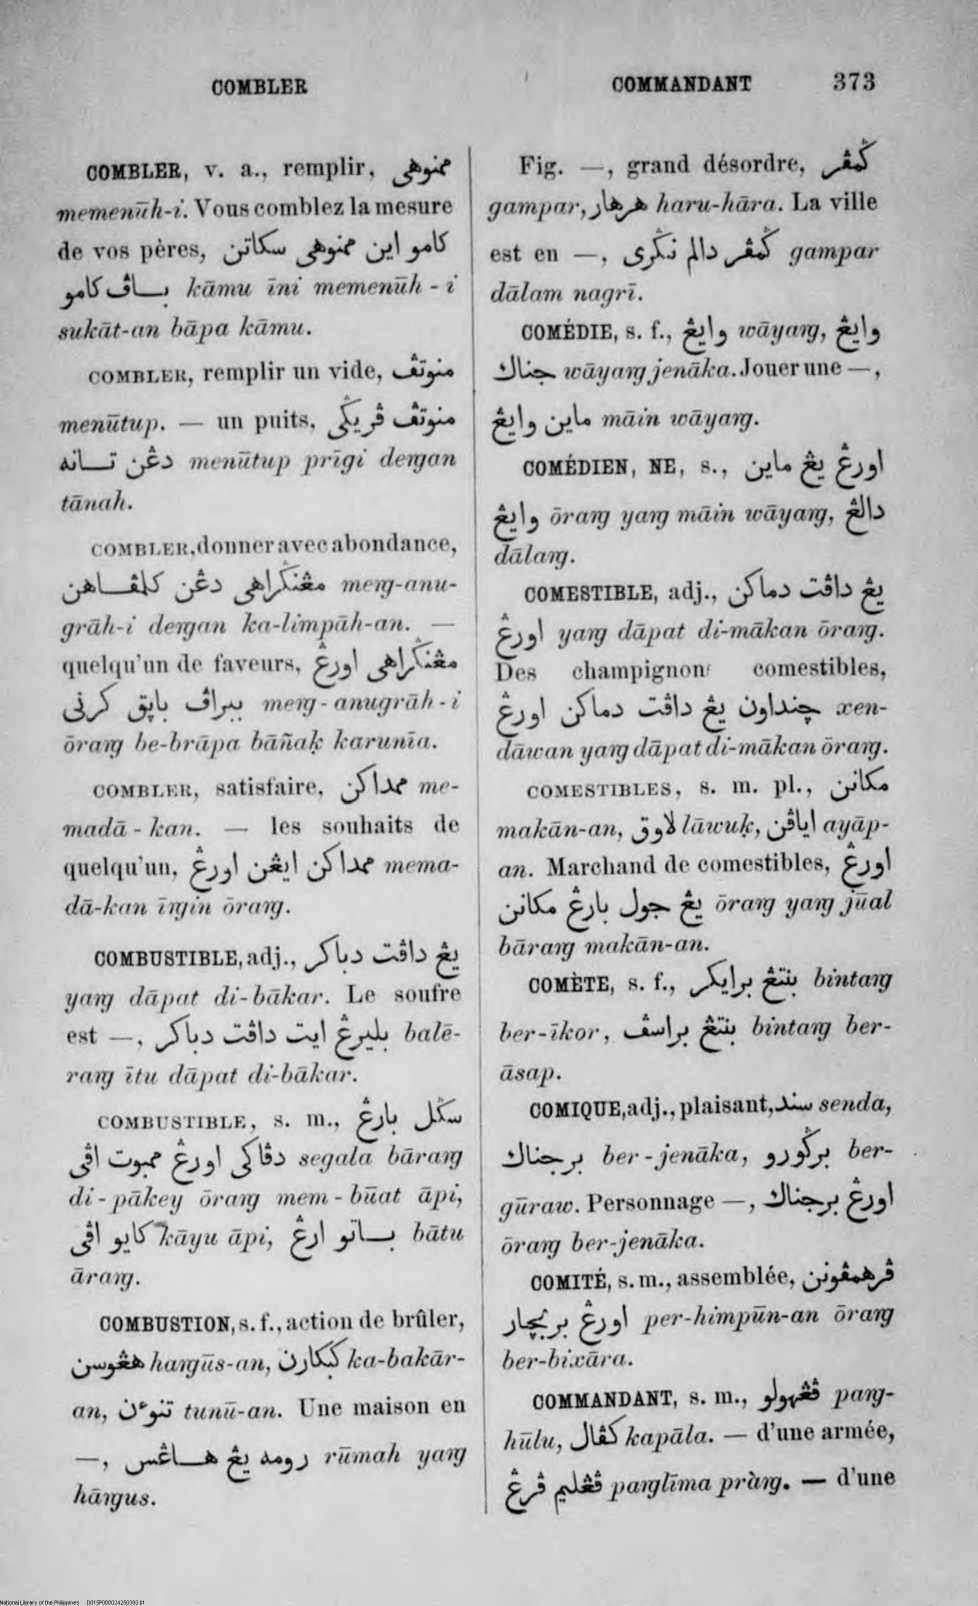 COMBLER
COMMANDANT 373
COMBLER, v. a., remplir, ممنوهي
memenūh-i. Vous comblez la mesure
de vos pères, كامو اين ممنوهي سكاتن
باڤ كامو kāmu īni memenūh-i
sukāt-an bāpa kāmu.
COMBLER, remplir un vide, منوتڤ
menūtup. — un puits, منوتڤ ڤريݢي
دڠن تانه menūtup prīgi deŋan
tānah.
COMBLER, donner avec abondance,
مڠنݢراهي دڠن كلمڤاهن meŋ-anu-
grāh-i deŋan ka-limpāh-an. —
quelqu'un de faveurs, مڠنݢراهي اورڠ
ببراڤ باڽق كرني meŋ-anugrāh-i
ōraŋ be-brāpa bāñaḳ karunīa.
COMBLER, satisfaire, ممداكن me-
madā-kan. — les souhaits de
quelqu'un, ممداكن ايڠن اورڠ mema-
dā-kan īŋin ōraŋ.
COMBUSTIBLE, adj., يڠ داڤت دباكر
yaŋ dāpat di-bākar. Le soufre
est —, بليرڠ ايت داڤت دباكر balē-
raŋ ītu dāpat di-bākar.
COMBUSTIBLE, s. m., سݢل بارڠ
دڤاكي اورڠ ممبوت اڤي segala bāraŋ
di-pākey ōraŋ mem-būat āpi,
كايو اڤي kāyu āpi, باتو ارڠ bātu
āraŋ.
COMBUSTION, s. f., action de brûler,
هڠوسن haŋūs-an, كبكارن ka-bakār-
an, تنوءن tunū-an. Une maison en
—, رومه يڠ هاڠس rūmah yaŋ
hāŋus.
Fig. —, grand désordre, ݢمڤر
gampar, هرهار haru-hāra. La ville
est en —, ݢمڤر دالم نݢري gampar
dālam nagrī.
COMÉDIE, s. f., وايڠ wāyaŋ, وايڠ
جناك wāyaŋ jenāka. Jouer une —,
ماين وايڠ māin wāyaŋ.
COMÉDIEN, NE, s., اورڠ يڠ ماين
وايڠ ōraŋ yaŋ māin wāyaŋ, دالڠ
dālaŋ.
COMESTIBLE, adj., يڠ داڤت دماكن
اورڠ yaŋ dāpat di-mākan ōraŋ.
Des champignons comestibles,
چنداون يڠ داڤت دماكن اورڠ xen-
dāwan yaŋ dāpat di-mākan ōraŋ.
COMESTIBLES, s. m. pl., مكانن
makān-an, لاوق lāwuḳ, اياڤن ayāp-
an. Marchand de comestibles, اورڠ
يڠ جول بارڠ مكانن ōraŋ yaŋ jūal
bāraŋ makān-an.
COMÈTE, s. f., بنتڠ برايكر bintaŋ
ber-īkor, بنتڠ براسڤ bintaŋ ber-
āsap.
COMIQUE, adj., plaisant, سند senda,
برجناك ber-jenāka, برݢورو ber-
gūraw. Personnage —, اورڠ برجناك
ōraŋ ber-jenāka.
COMITÉ, s. m., assemblée, ڤرهمڤونن
اورڠ بربچار per-himpūn-an ōraŋ
ber-bixāra.
COMMANDANT, s. m., ڤڠهولو paŋ-
hūlu, كڤال kapāla. — d'une armée,
ڤڠليم ڤرڠ paŋlīma pràŋ. — d'une
National Library of the Philippines